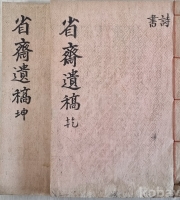 詩
書
省齋遺稿 乾
省齋遺稿 坤
kobay